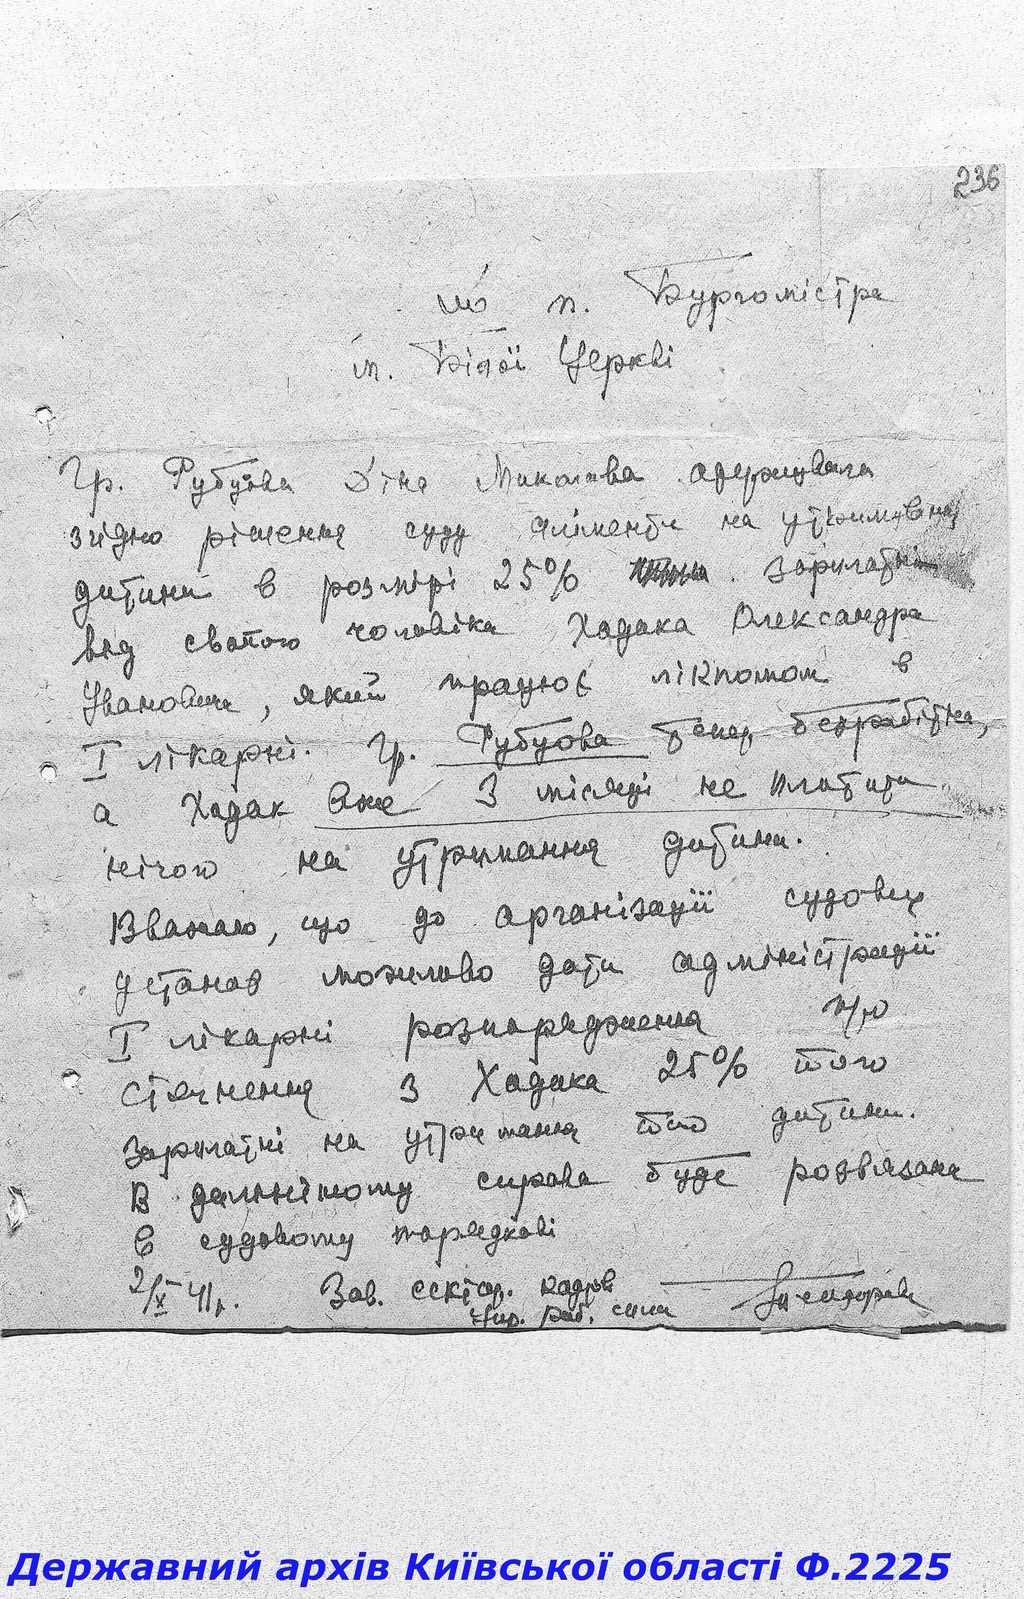 236
до п. Бургомістра
м. Білої Церкві
Гр. Рубцова Діна Миколаївна одержувала
згідно рішення суду аліменти на утримання
дитини в розмірі 25% зарплатні
від свайого чоловіка Хадака Олександра
Увановича, який працює лікпомом в
I лікарні. Гр. Рубцова тепер безробітна,
а Хадак вже 3 місяці не платить
нічого на утримання дитини.
Вважаю, що до організації судових
установ можливо дати адміністрації
I лікарні розпорядження п/ро
стягнення з Хадака 25% його
зарплатні на утримання його дитини.
В дальнішому справа буде розвязана
в судовому порядкові
2/X 41р. Зав. сектор. кадрів
Упр. раб. сили
Державний архів Київської області Ф.2225